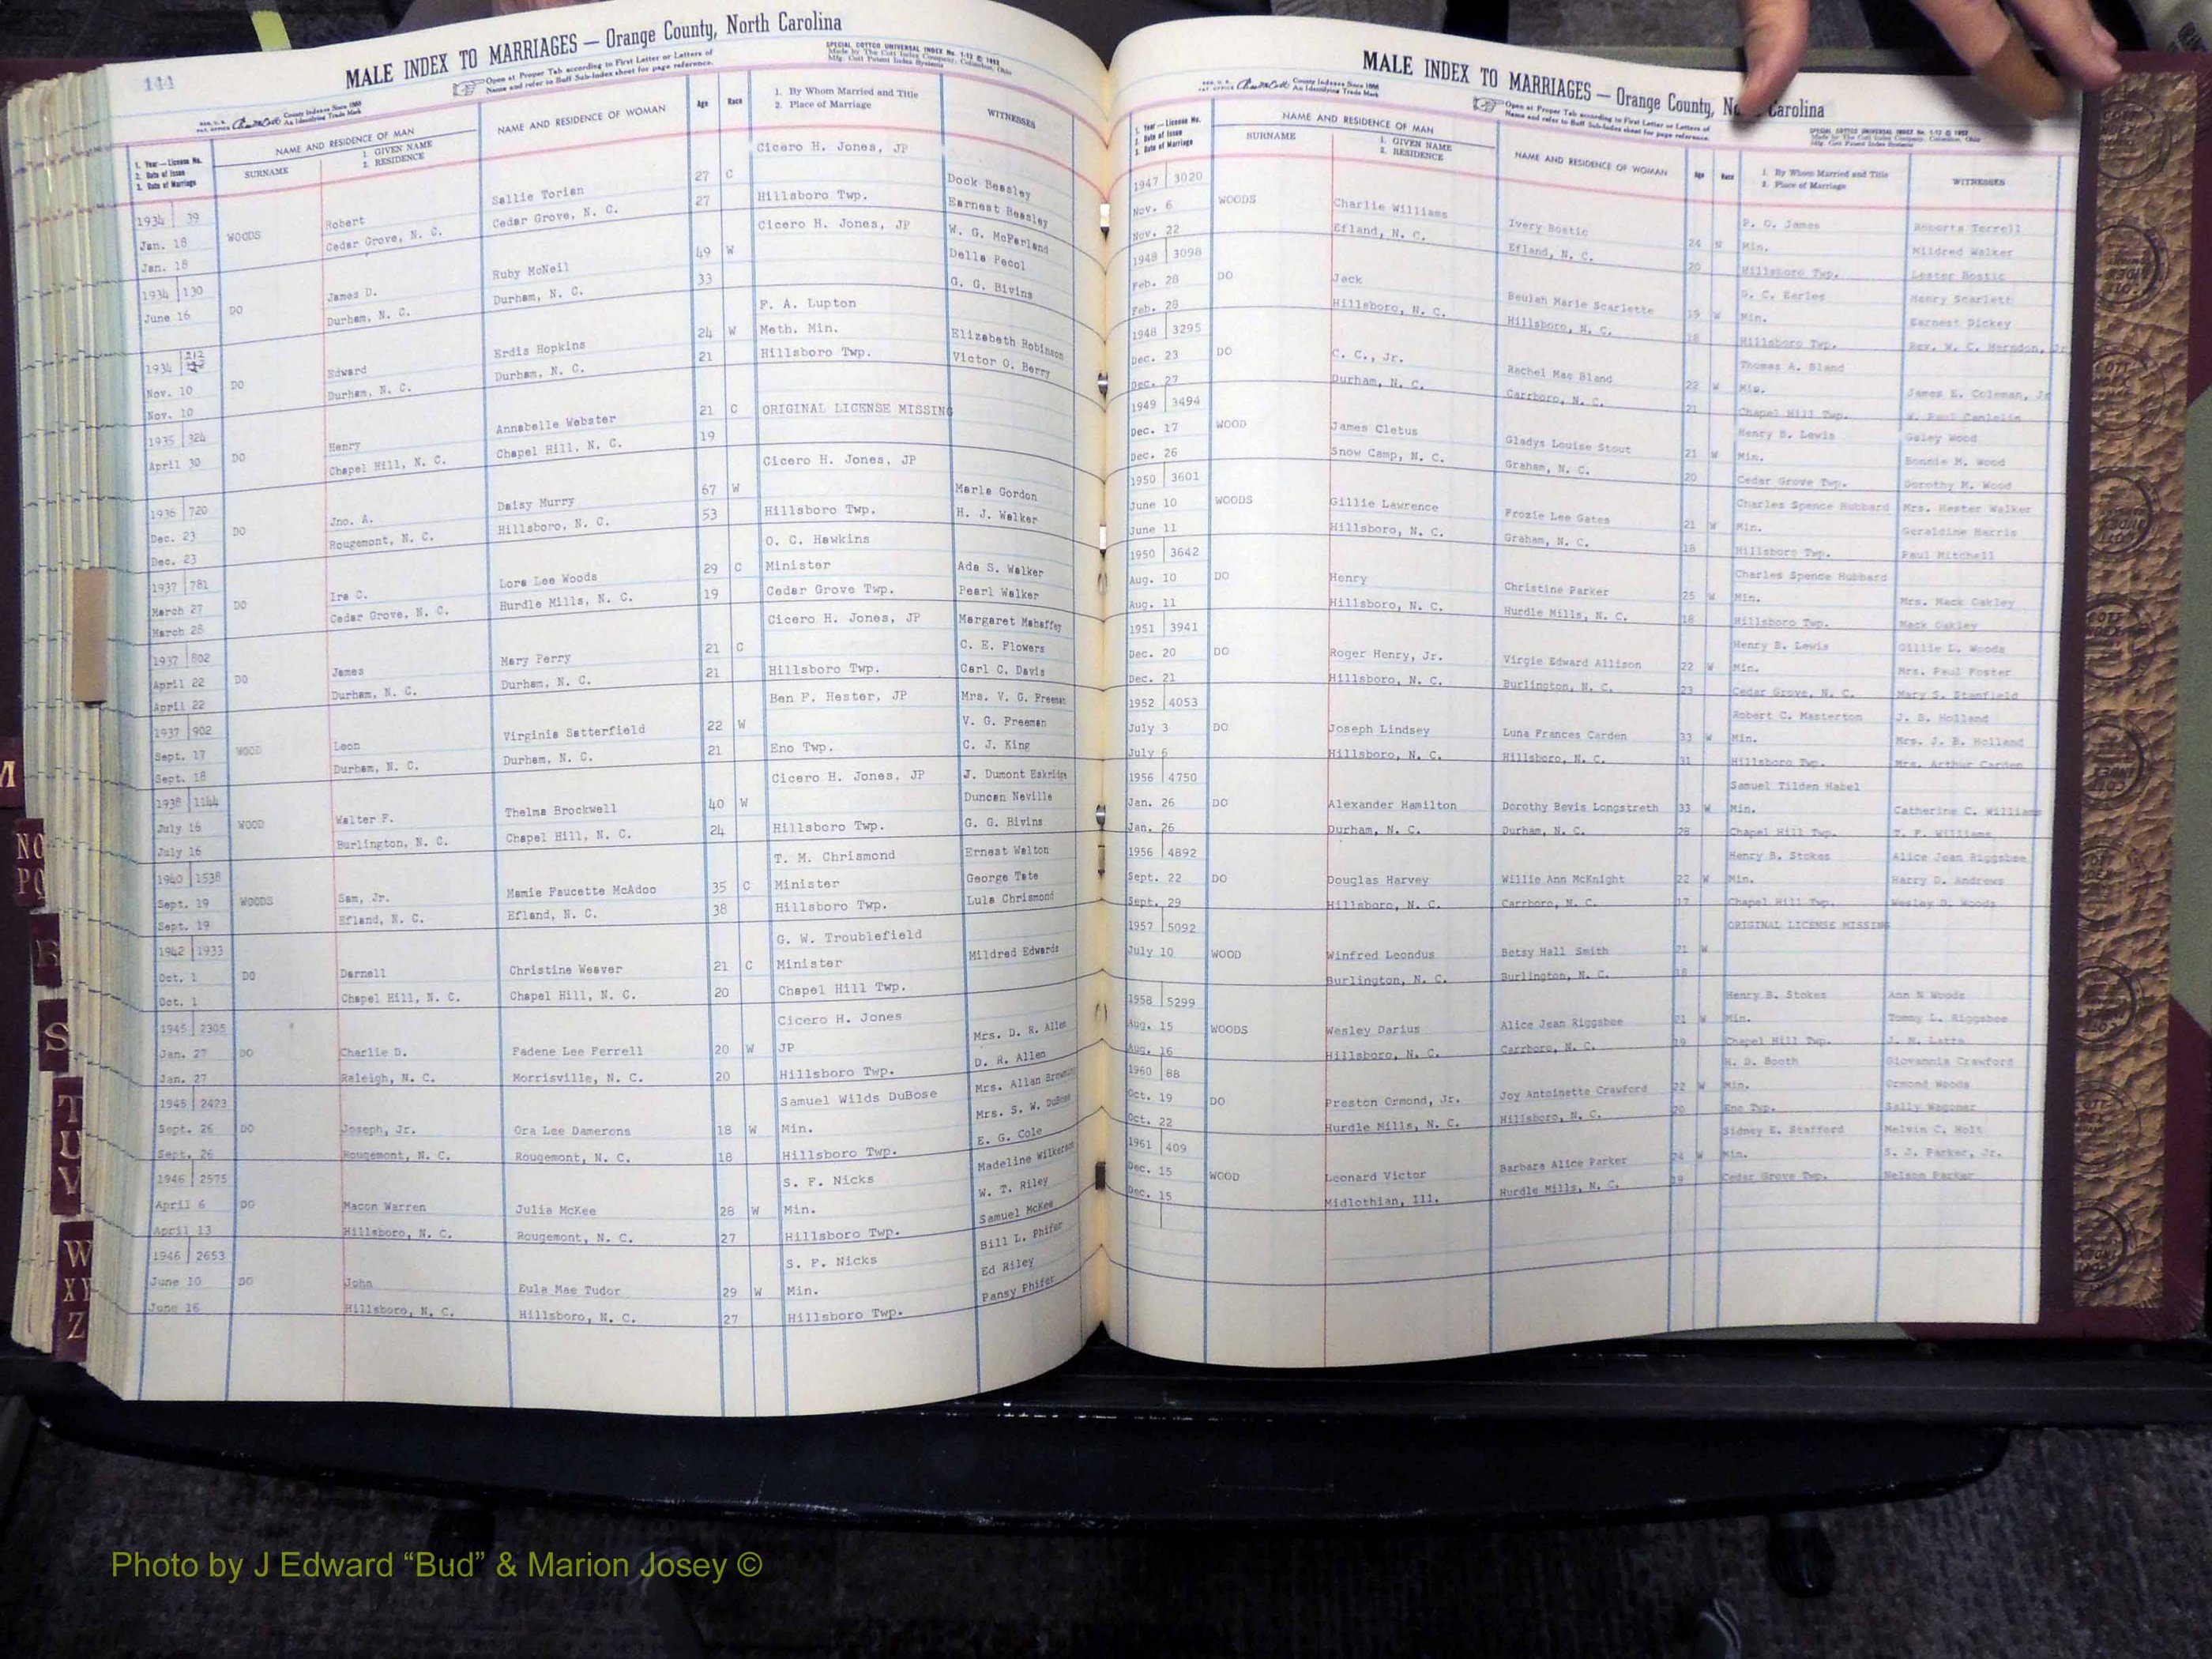 144
MALE INDEX TO MARRIAGES — Orange County, North Carolina
Open at Proper Tab according to First Letter or Letters of
Name and refer to Buff Sub-Index sheet for page reference.
SPECIAL COTTCO UNIVERSAL INDEX No. 1-12 © 1952
Made by The Cott Index Company, Columbus, Ohio
Mfg. Cott Patent Index Systems
County Indexes Since 1888
An Identifying Trade Mark
1. Year — License No.
2. Date of Issue
3. Date of Marriage
NAME AND RESIDENCE OF MAN
SURNAME
1. GIVEN NAME
2. RESIDENCE
NAME AND RESIDENCE OF WOMAN
Age
Race
1. By Whom Married and Title
2. Place of Marriage
WITNESSES
1934 39 Cicero H. Jones, JP
Jan. 18 WOODS Robert Sallie Torian 27 C Dock Beasley
Jan. 18 Cedar Grove, N. C. Cedar Grove, N. C. 27 Hillsboro Twp. Earnest Beasley
1934 130 Cicero H. Jones, JP W. G. McFarland
June 16 DO James D. Ruby McNeil 49 W Della Pecol
Durham, N. C. Durham, N. C. 33 G. G. Bivins
1934 212 F. A. Lupton
Nov. 10 DO Edward Erdis Hopkins 24 W Meth. Min. Elizabeth Robinson
Nov. 10 Durham, N. C. Durham, N. C. 21 Hillsboro Twp. Victor O. Berry
1935 324
April 30 DO Henry Annabelle Webster 21 C ORIGINAL LICENSE MISSING
Chapel Hill, N. C. Chapel Hill, N. C. 19
1936 720 Cicero H. Jones, JP
Dec. 23 DO Jno. A. Daisy Murry 67 W Marle Gordon
Dec. 23 Rougemont, N. C. Hillsboro, N. C. 53 Hillsboro Twp. H. J. Walker
1937 781 O. C. Hawkins
March 27 DO Ira C. Lora Lee Woods 29 C Minister Ada S. Walker
March 28 Cedar Grove, N. C. Hurdle Mills, N. C. 19 Cedar Grove Twp. Pearl Walker
1937 802 Cicero H. Jones, JP Margaret Mahaffey
April 22 DO James Mary Perry 21 C C. E. Flowers
April 22 Durham, N. C. Durham, N. C. 21 Hillsboro Twp. Carl C. Davis
1937 902 Ben F. Hester, JP Mrs. V. G. Freeman
Sept. 17 WOOD Leon Virginia Satterfield 22 W V. G. Freeman
Sept. 18 Durham, N. C. Durham, N. C. 21 Eno Twp. C. J. King
1938 1144 Cicero H. Jones, JP J. Dumont Eskridge
July 16 WOOD Walter F. Thelma Brockwell 40 W Duncan Neville
July 16 Burlington, N. C. Chapel Hill, N. C. 24 Hillsboro Twp. G. G. Bivins
1940 1538 T. M. Chrismond Ernest Walton
Sept. 19 WOODS Sam, Jr. Mamie Faucette McAdoo 35 C Minister George Tate
Sept. 19 Efland, N. C. Efland, N. C. 38 Hillsboro Twp. Lula Chrismond
1942 1933 G. W. Troublefield
Oct. 1 DO Darnell Christine Weaver 21 C Minister Mildred Edwards
Oct. 1 Chapel Hill, N. C. Chapel Hill, N. C. 20 Chapel Hill Twp.
1945 2305 Cicero H. Jones
Jan. 27 DO Charlie D. Fadene Lee Ferrell 20 W JP Mrs. D. R. Allen
Jan. 27 Raleigh, N. C. Morrisville, N. C. 20 Hillsboro Twp. D. R. Allen
1945 2423 Samuel Wilds DuBose Mrs. Allan Browning
Sept. 26 DO Joseph, Jr. Ora Lee Damerons 18 W Min. Mrs. S. W. DuBose
Sept. 26 Rougemont, N. C. Rougemont, N. C. 18 Hillsboro Twp. E. G. Cole
1946 2575 S. F. Nicks Madeline Wilkerson
April 6 DO Macon Warren Julia McKee 28 W Min. W. T. Riley
April 13 Hillsboro, N. C. Rougemont, N. C. 27 Hillsboro Twp. Samuel McKee
1946 2653 S. F. Nicks Bill L. Phifer
June 10 DO John Eula Mae Tudor 29 W Min. Ed Riley
June 16 Hillsboro, N. C. Hillsboro, N. C. 27 Hillsboro Twp. Pansy Phifer
MALE INDEX TO MARRIAGES — Orange County, No Carolina
Open at Proper Tab according to First Letter or Letters of
Name and refer to Buff Sub-Index sheet for page reference.
SPECIAL COTTCO UNIVERSAL INDEX No. 1-12 © 1952
Made by The Cott Index Company, Columbus, Ohio
Mfg. Cott Patent Index Systems
County Indexes Since 1888
An Identifying Trade Mark
1. Year — License No.
2. Date of Issue
3. Date of Marriage
NAME AND RESIDENCE OF MAN
SURNAME
1. GIVEN NAME
2. RESIDENCE
NAME AND RESIDENCE OF WOMAN
Age
Race
1. By Whom Married and Title
2. Place of Marriage
WITNESSES
1947 3020 P. O. James Roberta Terrell
Nov. 6 WOODS Charlie Williams Ivery Bostic 24 N Min. Mildred Walker
Nov. 22 Efland, N. C. Efland, N. C. 20 Hillsboro Twp. Lester Bostic
1948 3098 D. C. Earles Henry Scarlett
Feb. 28 DO Jack Beulah Marie Scarlette 19 W Min. Earnest Dickey
Feb. 28 Hillsboro, N. C. Hillsboro, N. C. 18 Hillsboro Twp. Rev. W. C. Herndon, Jr
1948 3295 Thomas A. Bland
Dec. 23 DO C. C., Jr. Rachel Mae Bland 22 W Min. James E. Coleman, Jr
Dec. 27 Durham, N. C. Carrboro, N. C. 21 Chapel Hill Twp. W. Paul
1949 3494 Henry B. Lewis Galey Wood
Dec. 17 WOOD James Cletus Gladys Louise Stout 21 W Min. Bonnie M. Wood
Dec. 26 Snow Camp, N. C. Graham, N. C. 20 Cedar Grove Twp. Dorothy M. Wood
1950 3601 Charles Spence Hubbard Mrs. Hester Walker
June 10 WOODS Gillie Lawrence Frozie Lee Gates 21 W Min. Geraldine Harris
June 11 Hillsboro, N. C. Graham, N. C. 18 Hillsboro Twp. Paul Mitchell
1950 3642 Charles Spence Hubbard
Aug. 10 DO Henry Christine Parker 25 W Min. Mrs. Mack Oakley
Aug. 11 Hillsboro, N. C. Hurdle Mills, N. C. 18 Hillsboro Twp. Mack Oakley
1951 3941 Henry B. Lewis Gillie L. Woods
Dec. 20 DO Roger Henry, Jr. Virgie Edward Allison 22 W Min. Mrs. Paul Foster
Dec. 21 Hillsboro, N. C. Burlington, N. C. 23 Cedar Grove, N. C. Mary S. Stanfield
1952 4053 Robert C. Masterton J. B. Holland
July 3 DO Joseph Lindsey Luna Frances Carden 33 W Min. Mrs. J. B. Holland
July 6 Hillsboro, N. C. Hillsboro, N. C. 31 Hillsboro Twp. Mrs. Arthur Carden
1956 4750 Samuel Tilden Habel
Jan. 26 DO Alexander Hamilton Dorothy Bevis Longstreth 33 W Min. Catherine C. Williams
Jan. 26 Durham, N. C. Durham, N. C. 28 Chapel Hill Twp. T. F. Williams
1956 4892 Henry B. Stokes Alice Jean Riggsbee
Sept. 22 DO Douglas Harvey Willie Ann McKnight 22 W Min. Harry D. Andrews
Sept. 29 Hillsboro, N. C. Carrboro, N. C. 17 Chapel Hill Twp. Wesley D. Woods
1957 5092 ORIGINAL LICENSE MISSING
July 10 WOOD Winfred Leondus Betsy Hall Smith 21 W
Burlington, N. C. Burlington, N. C. 18
1958 5299 Henry B. Stokes Ann N Woods
Aug. 15 WOODS Wesley Darius Alice Jean Riggsbee 21 W Min. Tommy L. Riggsbee
Aug. 16 Hillsboro, N. C. Carrboro, N. C. 19 Chapel Hill Twp. J. M. Latta
1960 88 H. D. Booth Giovannia Crawford
Oct. 19 DO Preston Ormond, Jr. Joy Antoinette Crawford 22 W Min. Ormond Woods
Oct. 22 Hurdle Mills, N. C. Hillsboro, N. C. 20 Eno Twp. Sally Wagoner
1961 409 Sidney E. Stafford Melvin C. Holt
Dec. 15 WOOD Leonard Victor Barbara Alice Parker 24 W Min. S. J. Parker, Jr.
Dec. 15 Midlothian, Ill. Hurdle Mills, N. C. 19 Cedar Grove Twp. Nelson Parker
M
NO
PQ
R
S
T
U
V
W
XY
Z
Photo by J Edward “Bud” & Marion Josey ©